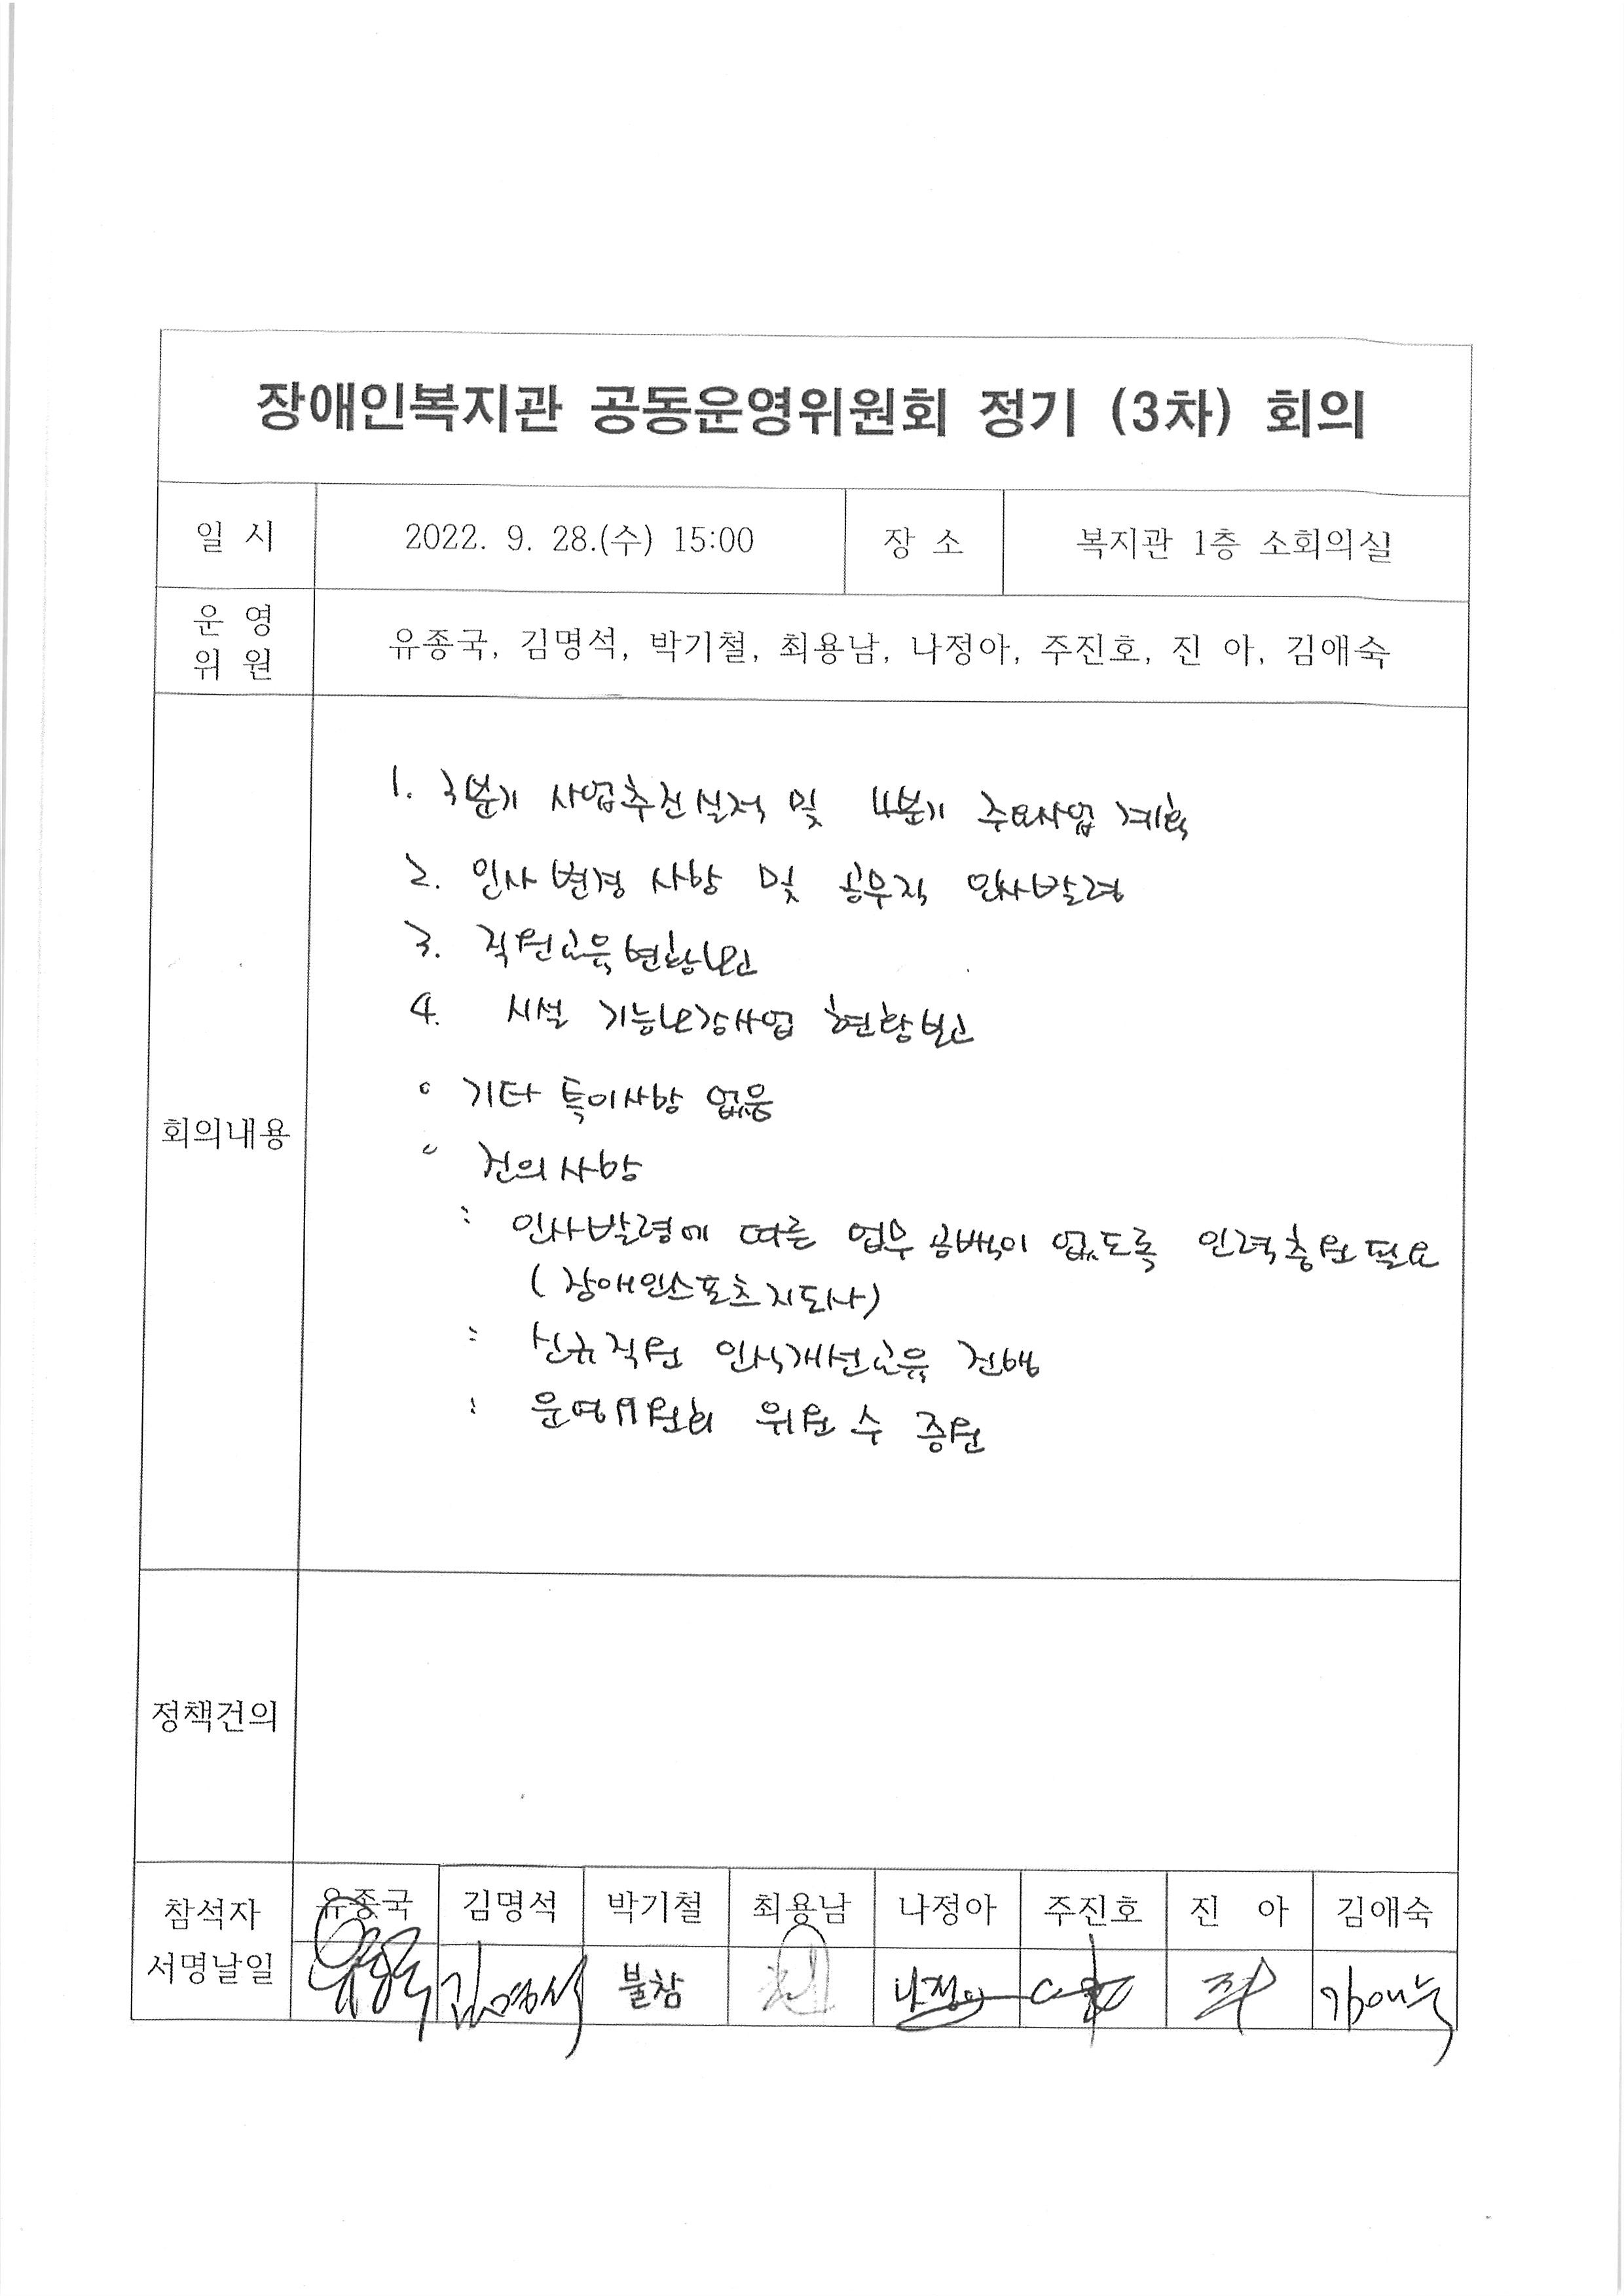 장애인복지관 공동운영위원회 정기 (3차) 회의
일 시 2022. 9. 28.(수) 15:00 장 소 복지관 1층 소회의실
운 영
위 원
유종국, 김명석, 박기철, 최용남, 나정아, 주진호, 진 아, 김애숙
회의내용
1. 3분기 사업추진실적 및 4분기 주요사업 계획
2. 인사변경 사항 및 공무직 인사발령
3. 직원교육현황보고
4. 시설 기능보강사업 현황보고
° 기타 특이사항 없음
° 건의사항
: 인사발령에 따른 업무공백이 없도록 인력충원필요
(장애인스포츠지도사)
: 신규직원 인식개선교육 진행
: 운영위원회 위원 수 증원
정책건의
참석자
서명날일
유종국 김명석 박기철 최용남 나정아 주진호 진 아 김애숙
김명석 불참 나정아 김애숙